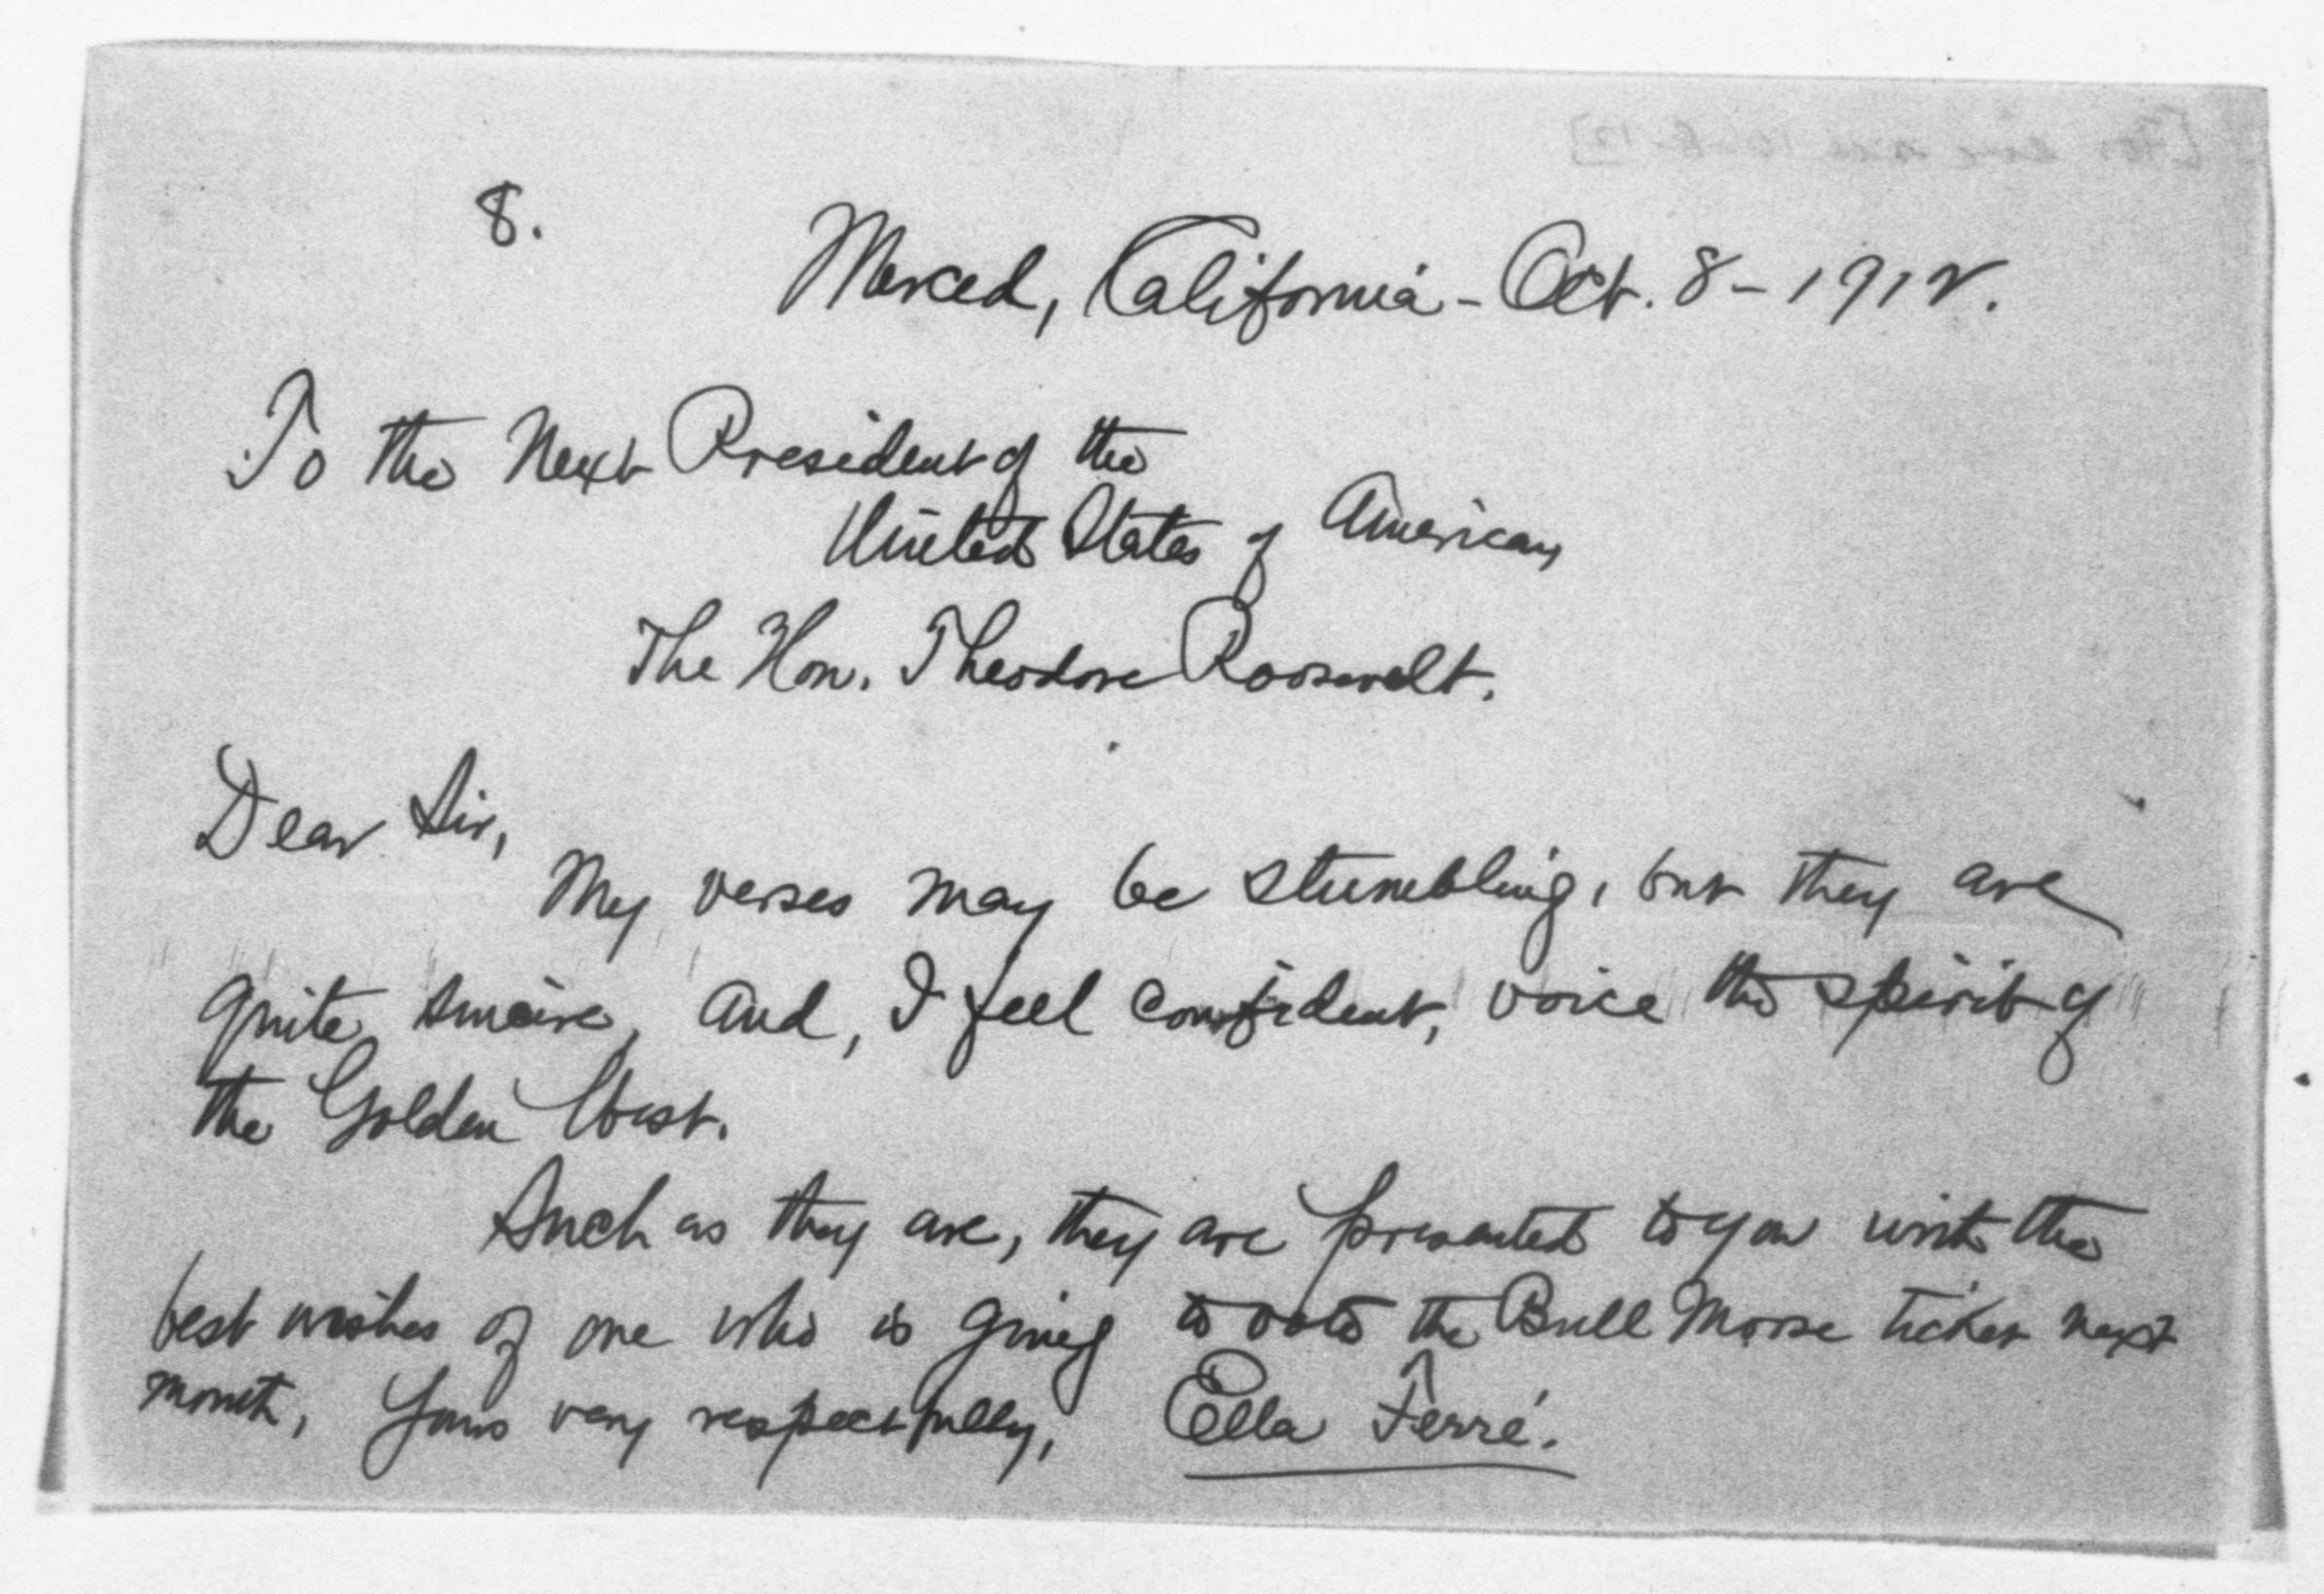 8.
Merced, California - Oct. 8 - 1912.
To the Next President of the
United States of American,
The Hon. Theodore Roosevelt.
Dear Sir,
My verses may be stumbling, but they are
quite sincere, and, I feel confident, voice the spirit of
the Golden West.
Such as they are, they are presented to you with the
best wishes of one who is going to vote the Bull Moose ticket next
month, Yours very respectfully, Ella Ferré.